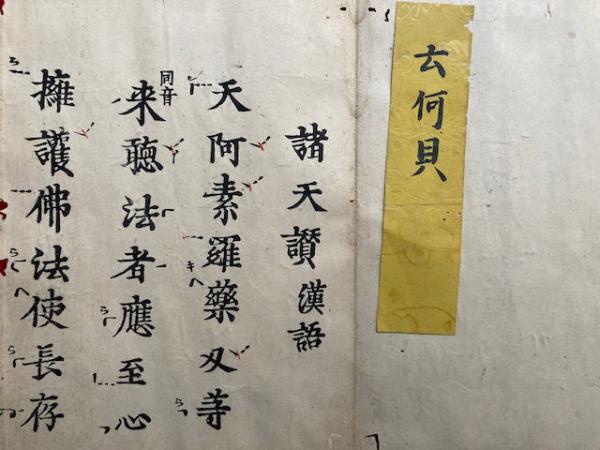 云何貝
諸天讃 漢語
天阿素羅藥叉等
同音
来聽法者應至心
擁護佛法使長存